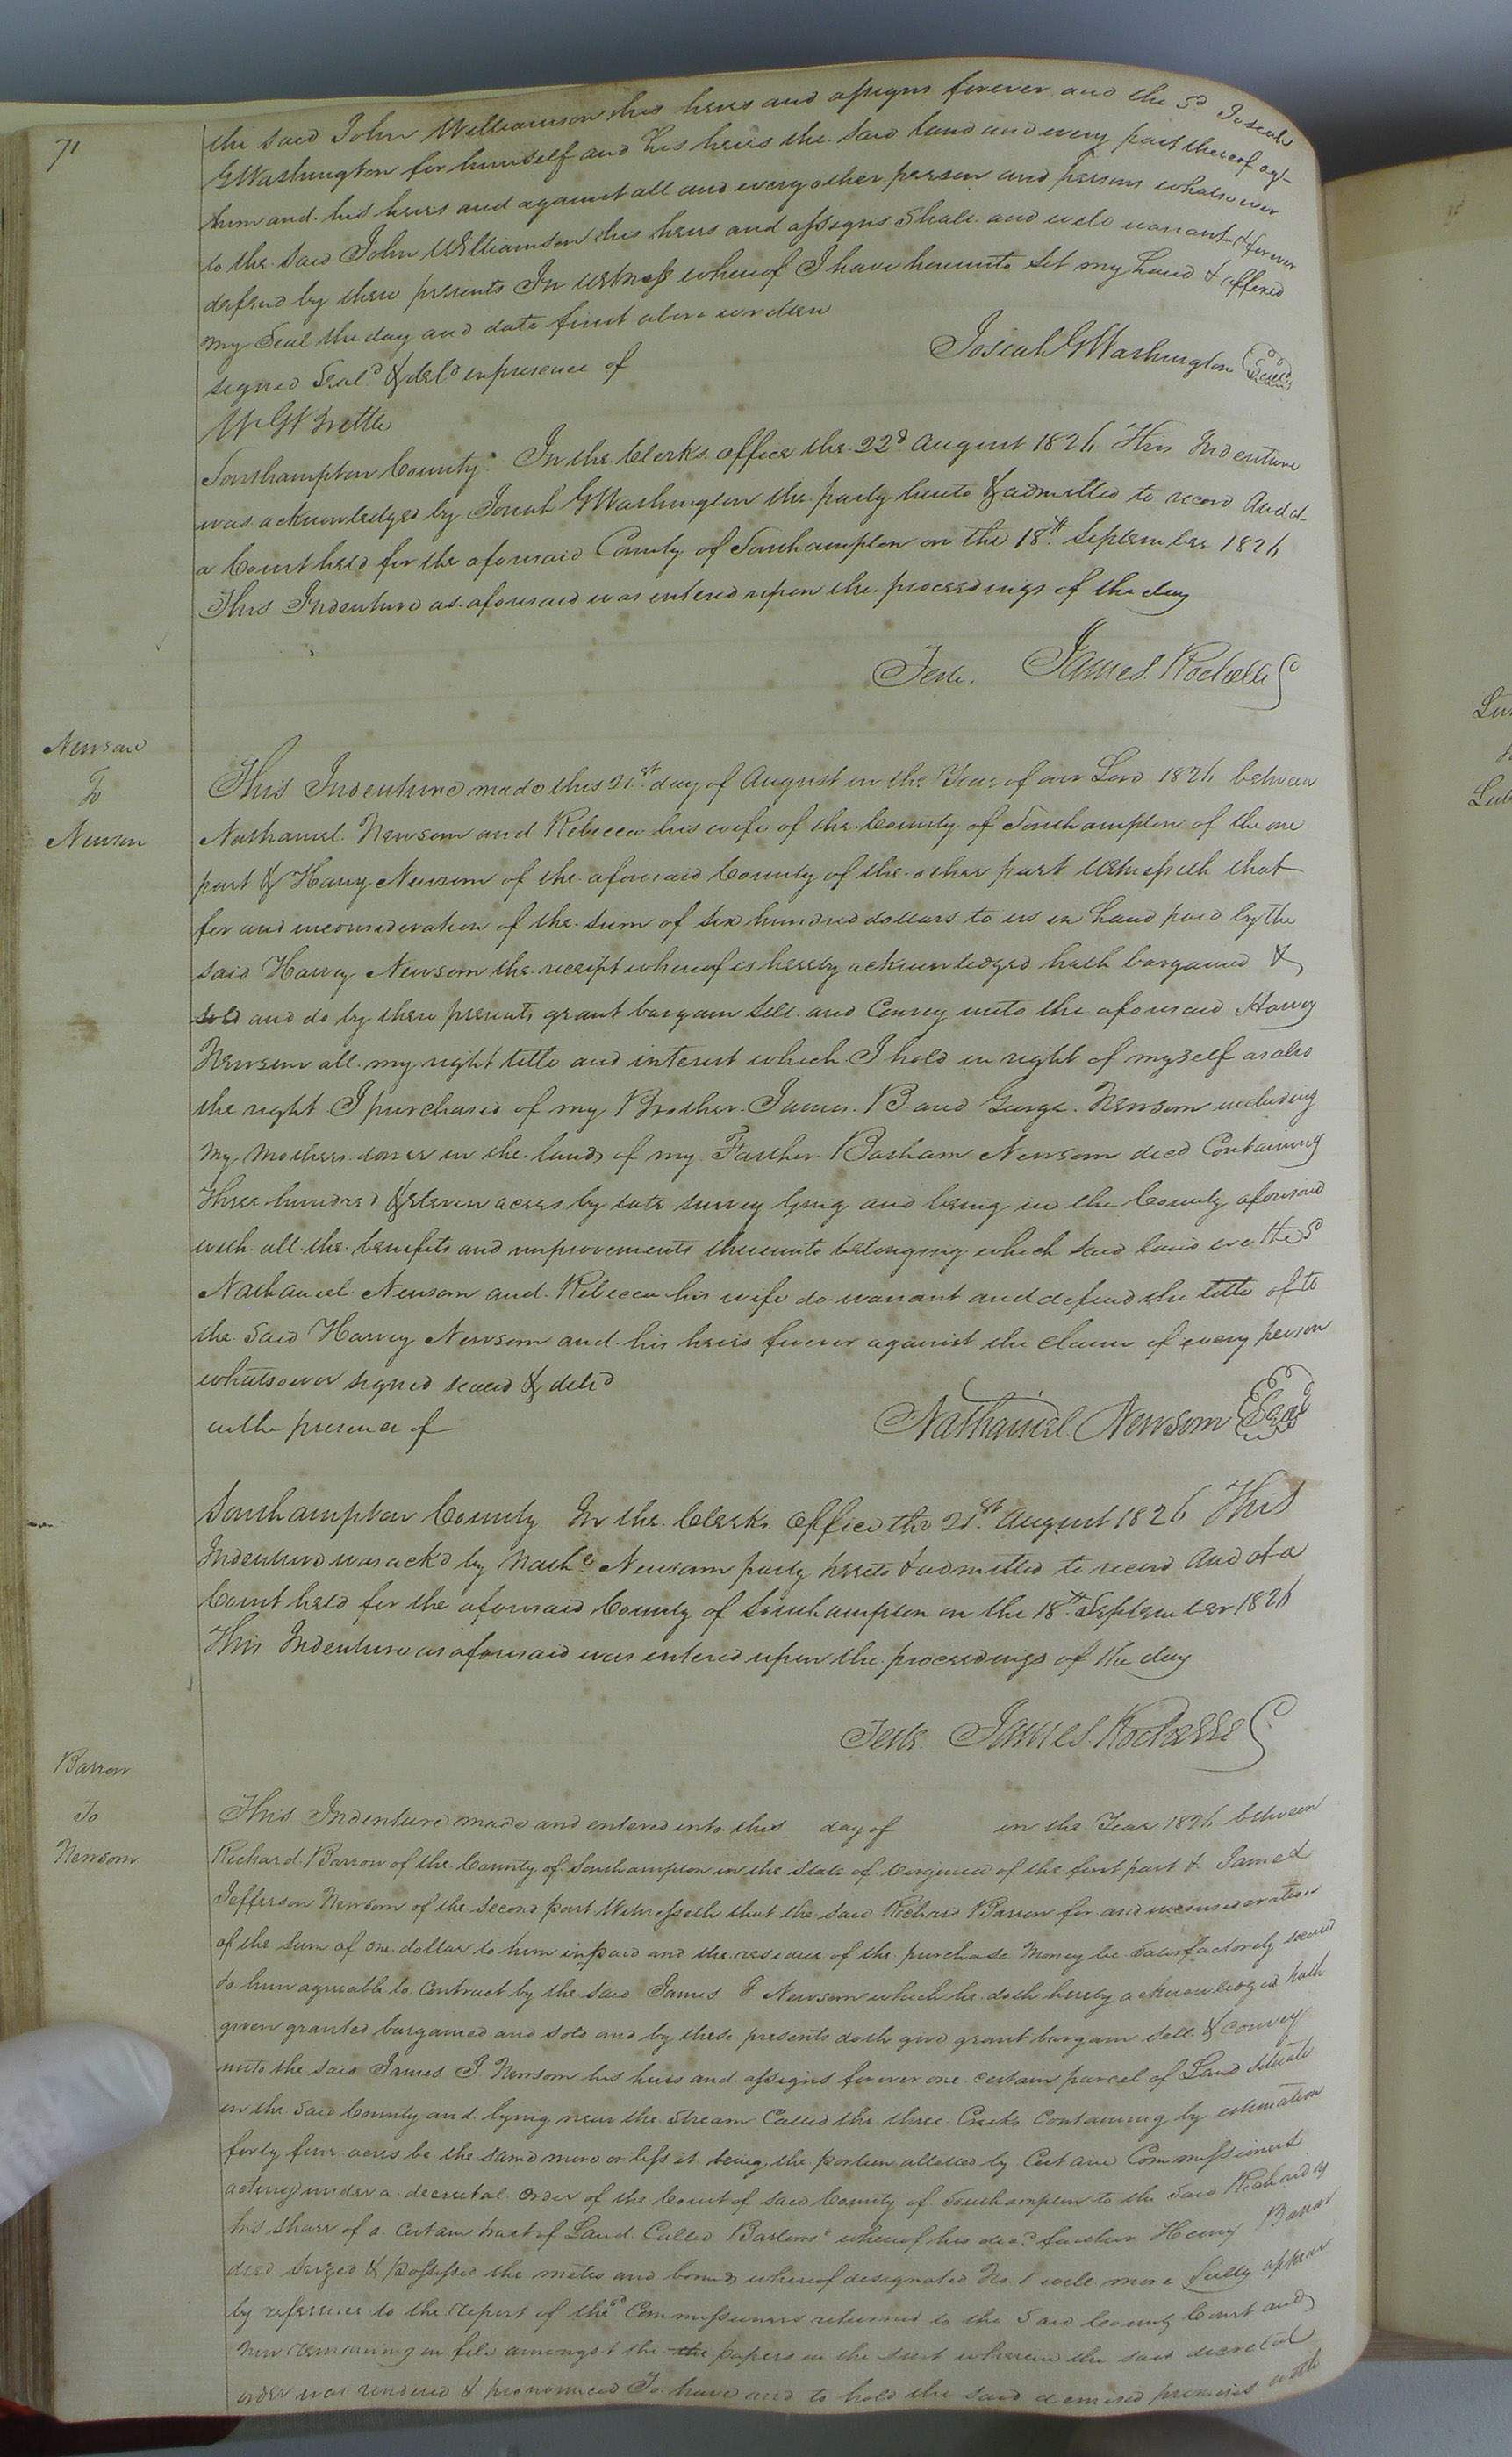 71
the said John Williamson his heirs and assigns forever and the sd Josiah
GWashington for himself and his heirs the said land and every part thereof agt
him and his heirs and against all and every other person and persons whatsoever
to the said John Williamson his heirs and assigns Shall and will warrant & forever
defend by these presents In witness whereof I have hereunto Set my hand & affixed
my Seal the day and date first above written
signed Seald & deld in presence of
Josiah GWashington Seal
Southampton County In the Clerks office the 22d August 1826 This Indenture
was acknowledged by Josiah GWashington the party hereto & admitted to record And at
a Court held for the aforesaid County of Southampton on the 18th September 1826
This Indenture as aforesaid was entered upon the proceedings of the day
Teste. James Rochelle C
Newsom
To
Newsom
This Indenture made this 21st day of August in the Year of our Lord 1826 between
Nathaniel Newsom and Rebecca his wife of the County of Southampton of the one
part & Harvy Newsom of the aforesaid County of the other part Witnesseth that
for and in consideration of the sum of six hundred dollars to us in hand paid by the
said Harvey Newsom the receipt whereof is hereby acknowledged hath bargained &
sold and do by these presents grant bargain sell and Convey unto the aforesaid Harvy
Newsom all my right title and interest which I hold in right of myself as also
the right I purchased of my Brother James B and George Newsom including
my Mothers dower in the lands of my Father Barham Newsom decd Containing
Three hundred & eleven acres by late survey lying and being in the County aforesaid
with all the benefits and improvements thereunto belonging which said land we the sd
Nathaniel Newsom and Rebecca his wife do warrant and defend the title of to
the Said Harvey Newsom and his heirs forever against the claim of every person
whatsoever signed sealed & delid
in the presence of
Nathaniel Newsom Seal
Southampton County In the Clerks Office the 21st August 1826 This
Indenture was ackd by Nathl Newsom party hereto & admitted to record And at a
Court held for the aforesaid County of Southampton on the 18th September 1826
This Indenture as aforesaid was entered upon the proceedings of the day
Teste James Rochelle C
Barrow
To
Newsom
This Indenture made and entered into this day of in the Year 1826 between
Richard Barrow of the County of Southampton in the State of Virginia of the first part & James
Jefferson Newsom of the Second part Witnesseth that the said Richard Barrow for and in consideration
of the Sum of one dollar to him in paid and the residue of the purchase Money be Satisfactorily secured
to him agreeable to Contract by the said James J Newsom which he doth hereby acknowledged hath
given granted bargained and sold and by these presents doth give grant bargain sell & convey
unto the said James J Newsom his heirs and assigns forever one certain parcel of Land situate
in the Said County and lying near the Stream Called the three Creeks Containing by estimation
forty four acres be the same more or less it being the portion allotted by Certain Commissioners
acting under a decretal order of the Court of said County of Southampton to the Said Richard as
his share of a Certain tract of Land Called whereof his decd father Henry Barrow
died Seized & possessed the metes and bounds whereof designated No. 1 will more fully appear
by reference to the report of the sd Commissioners returned to the Said County Court and
now remaining on file amongst the the papers in the suit wherein the said decretal
order was rendered & pronounced To have and to hold the said demised premises with